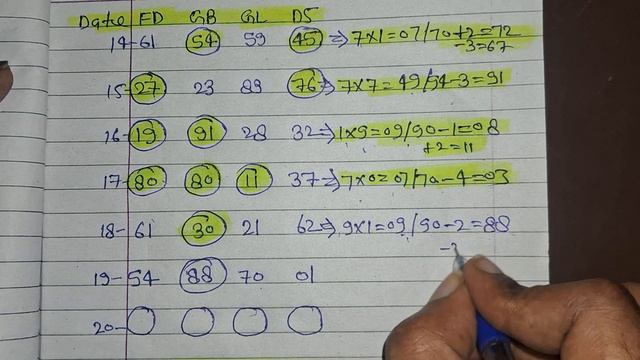 Date FD GB GL DS
14-61 54 59 45 ⇒ 7x1=07/70+2=72
-3=67
15-27 23 89 76 ⇒ 7x7=49/94-3=91
16-19 91 28 32 ⇒ 1x9=09/90-1=08
+2=11
17-80 80 11 37 ⇒ 7x0=07/70-4=03
18-61 30 21 62 ⇒ 9x1=09/90-2=88
19-54 88 70 01
20-